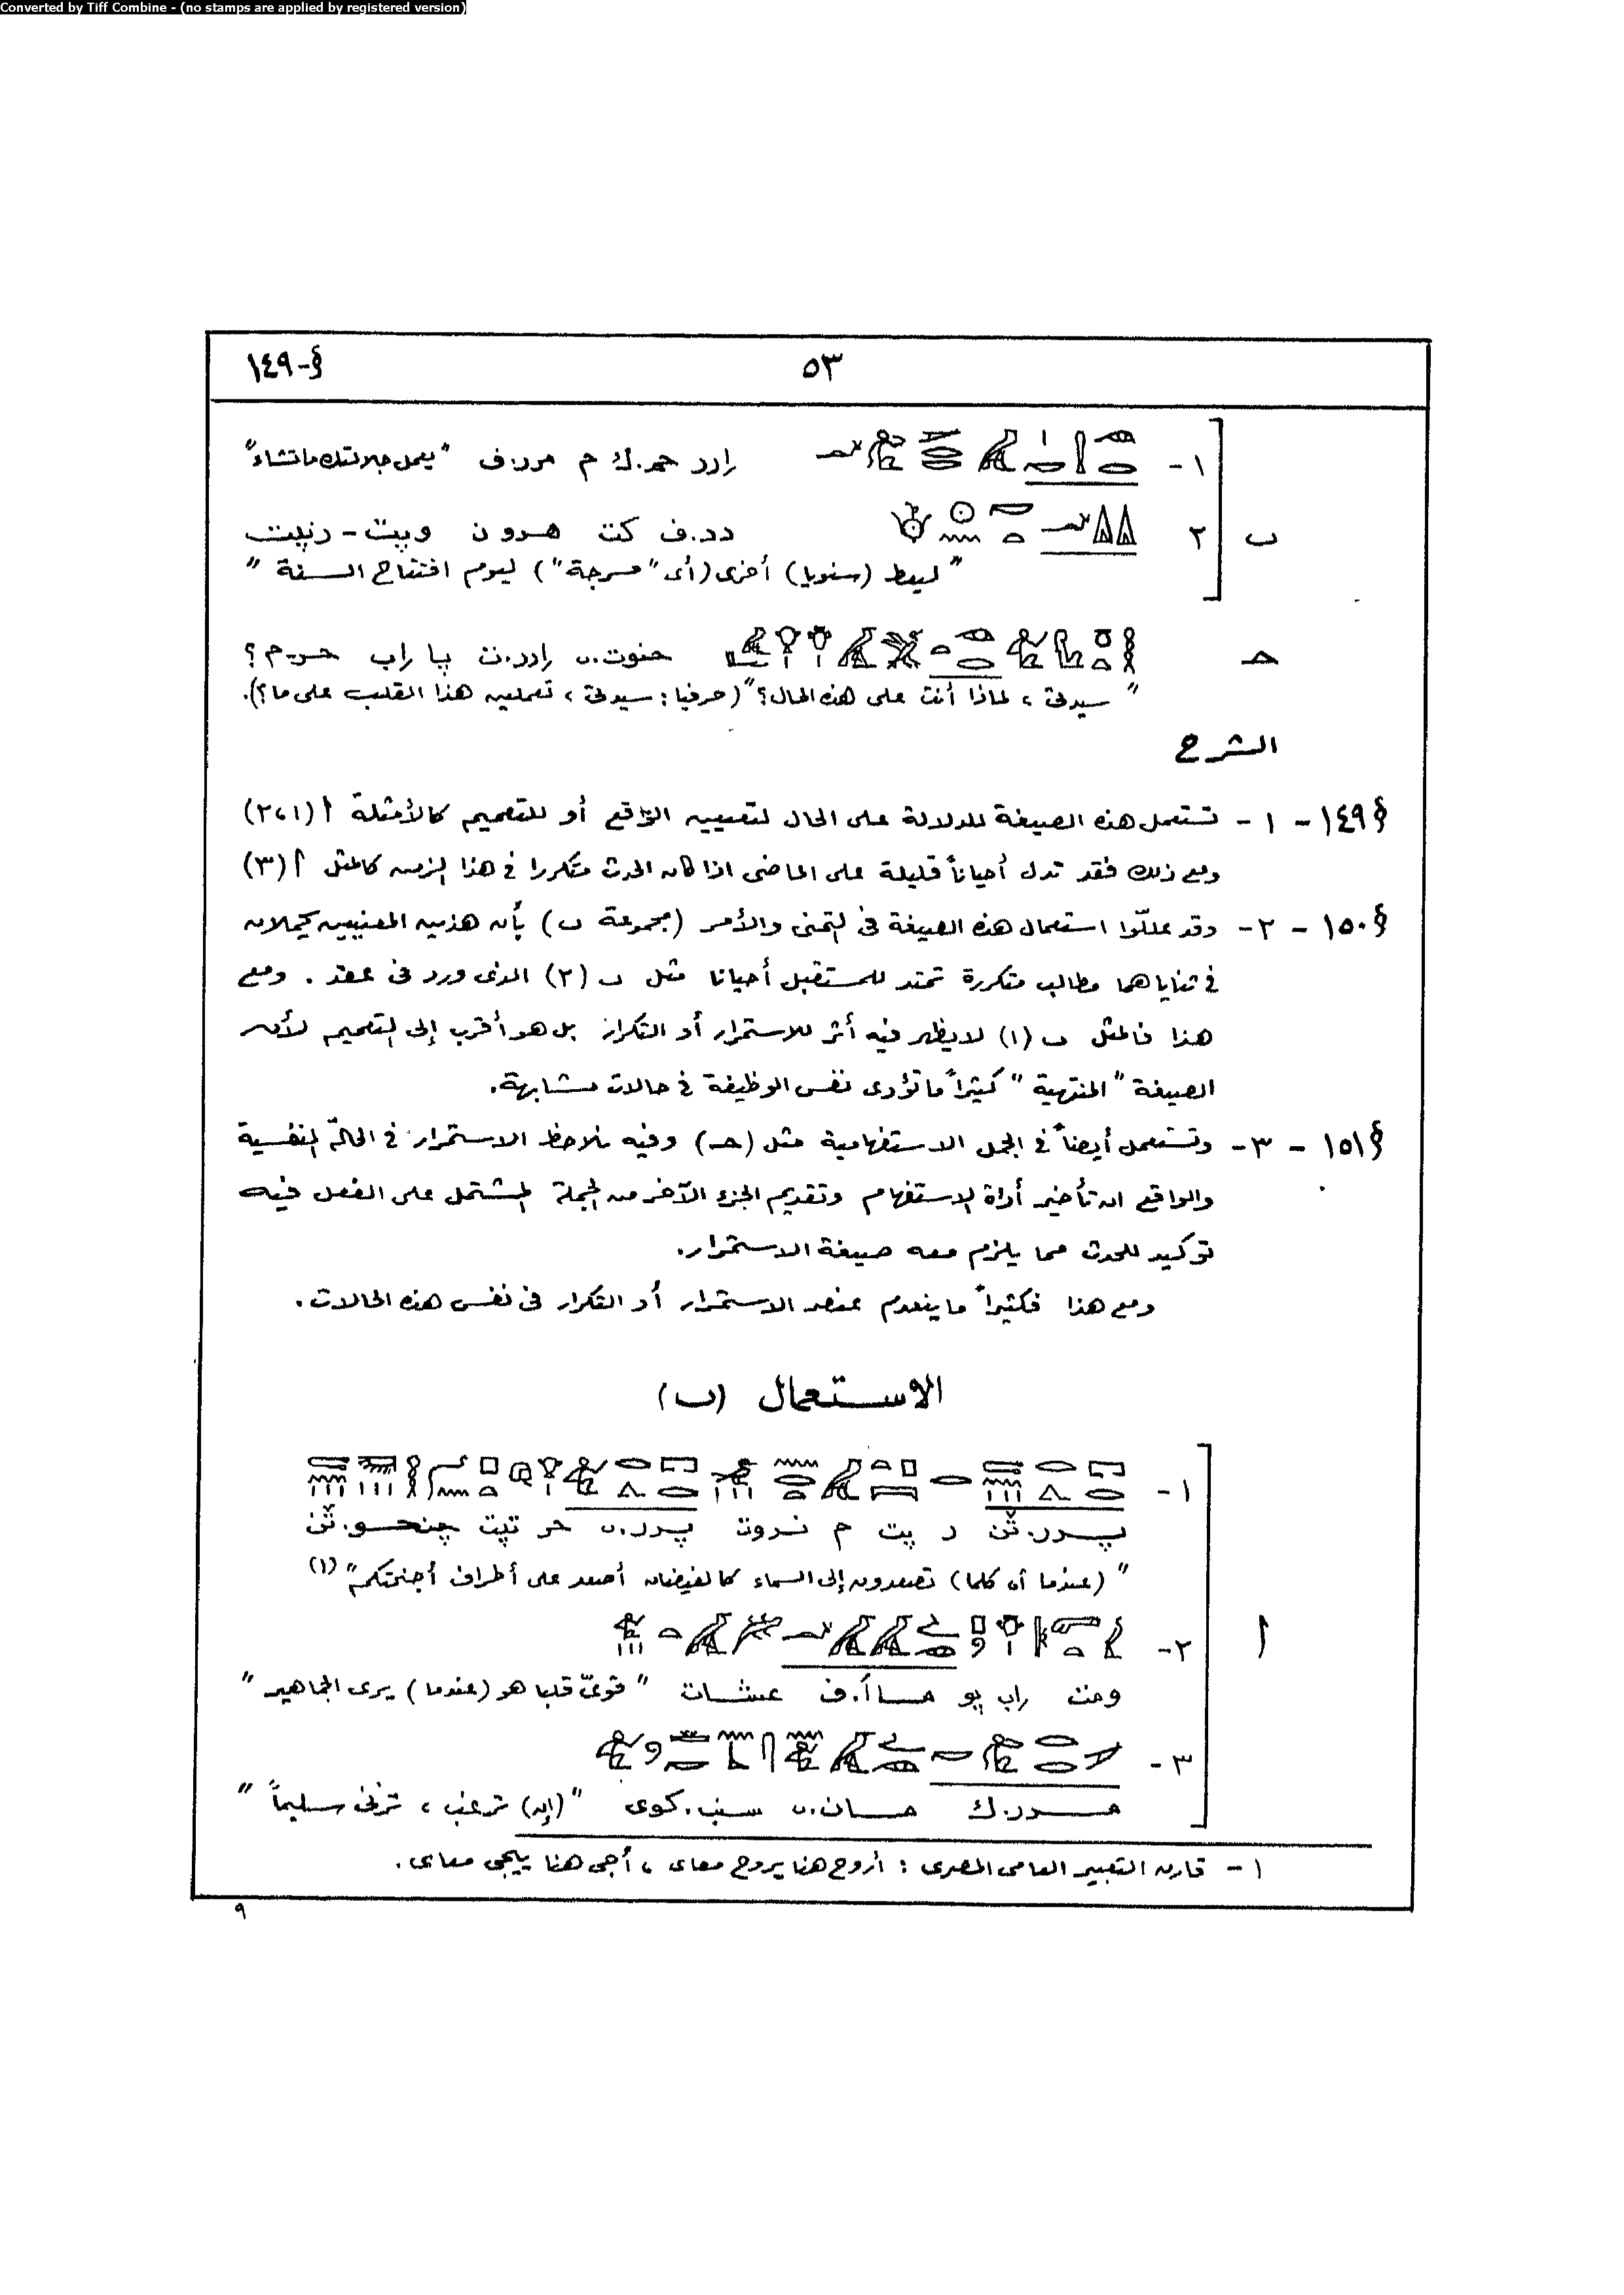 Converted by Tiff Combine - (no stamps are applied by registered version)
§-١٤٩
٥٣
١- رارد حم.ك م مرر.ف "يعمل جلالتك ما تشاء"
ب
٢ دد.ف كت هرو ن وپت - رنپت
" ليعط (سنويا) أخرى (أى "مسرجة") ليوم افتتاح السنة "
حـ حنوت.ى رارر.ت پا راب حر-م ؟
" سيدتى ، لماذا أنت على هذه الحال؟" (حرفيا : سيدتى ، تعملين هذا القلب على ما؟).
الشرح
§١٤٩ - ١ - تستعمل هذه الصيغة للدلالة على الحال لتعيين الواقع أو للتعميم كالأمثلة أ (١،٢)
ومع ذلك فقد تدل أحياناً قليلة على الماضى اذا كان الحدث متكررا فى هذا الزمن كالمثل أ (٣)
§١٥٠ - ٢ - وقد عللّوا استعمال هذه الصيغة فى التمنى والأمر (مجموعة ب) بأن هذين المعنيين يحملان
فى ثناياهما مطالب متكررة تمتد للمستقبل أحيانا مثل ب (٢) الذى ورد فى عقد . ومع
هذا فالمثل ب (١) لا يظهر فيه أثر للاستمرار أو التكرار بل هو أقرب إلى التعميم لأن
الصيغة "المنتهية" كثيراً ما تؤدى نفس الوظيفة فى حالات مشابهة.
§١٥١ - ٣ - وتستعمل أيضاً فى الجمل الاستفهامية مثل (حـ) وفيه نلاحظ الاستمرار فى الحالة النفسية
والواقع ان تأخير أداة الاستفهام وتقديم الجزء الآخر من الجملة المشتمل على الفعل فيه
توكيد للحدث مما يلزم معه صيغة الاستمرار.
ومع هذا فكثيراً ما ينعدم عنصر الاستمرار أو التكرار فى نفس هذه الحالات .
الاستعمال (ب)
١-
پرر.ثن ر پت م نروت پرر.ى حر تپت چنحو.ثن
" (عندما أو كلما) تصعدون إلى السماء كالفيضان أصعد على أطراف أجنحتكم" (١)
أ
٢-
ومت راب پو مسا أ.ف عشات " قوىّ قلبا هو (عندما) يرى الجماهير "
٣-
مرر.ك مسان.ى سنب.كوى " (إن) ترغب ، ترنى سليماً "
١ - قارن التعبير العامى المصرى : أروح هنا يروح معاى ، أجى هنا ييجى معاى .
٩